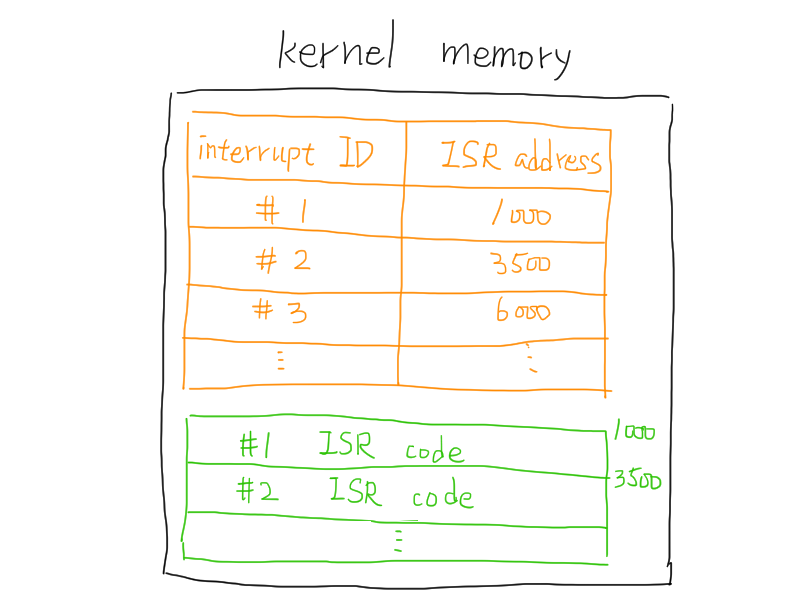 kernel memory
interrupt ID ISR address
# 1 1000
# 2 3500
# 3 6000
⋮ ⋮
1000
#1 ISR code
3500
#2 ISR code
⋮